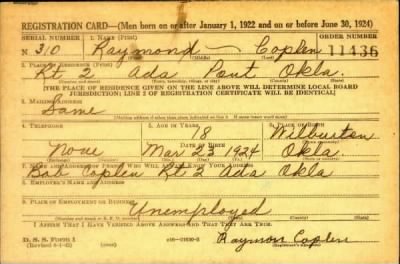 REGISTRATION CARD—(Men born on or after January 1, 1922 and on or before June 30, 1924)
SERIAL NUMBER 1. NAME (Print) ORDER NUMBER
N 310 Raymond — Coplen 11436
2. PLACE OF RESIDENCE (Print)
Rt 2 Ada Pont Okla.
[THE PLACE OF RESIDENCE GIVEN ON THE LINE ABOVE WILL DETERMINE LOCAL BOARD
JURISDICTION; LINE 2 OF REGISTRATION CERTIFICATE WILL BE IDENTICAL]
3. MAILING ADDRESS
Same
4. TELEPHONE 5. AGE IN YEARS 6. PLACE OF BIRTH
18 Wilburton
DATE OF BIRTH
None Mar 23 1924 Okla.
7. NAME AND ADDRESS OF PERSON WHO WILL ALWAYS KNOW YOUR ADDRESS
Bob Coplen Rt 2 Ada Okla
8. EMPLOYER'S NAME AND ADDRESS
9. PLACE OF EMPLOYMENT OR BUSINESS
Unemployed
I AFFIRM THAT I HAVE VERIFIED ABOVE ANSWERS AND THAT THEY ARE TRUE.
D. S. S. Form 1
Raymon Coplen